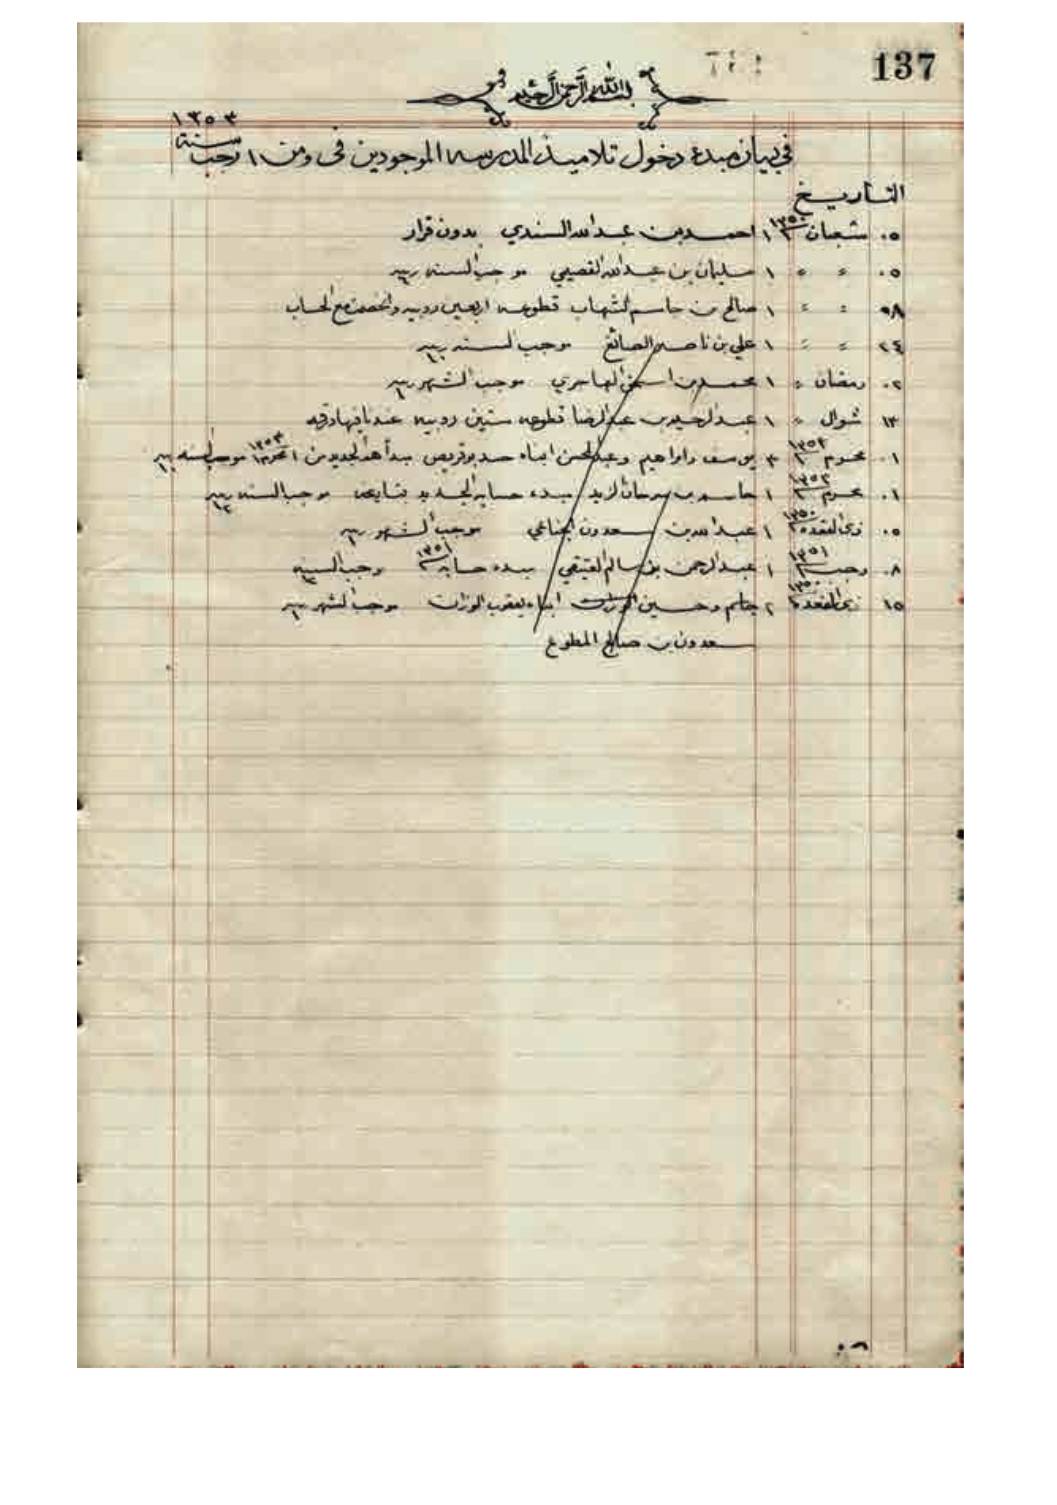 137
بسم الله الرحمن الرحيم
١٣٥٣
في بيان مبدء دخول تلاميذ المدرسه الموجودين في ومن ١ رجب سنة
التأريخ
٠٥ شعبان ١٣٥٠ ١ احمد بن عبدالله السندي بدون قرار
٠٥ = = ١ سليمان بن عبدالله القصيمي موجب السنه
٠٨ = = ١ صالح بن جاسم الشهاب قطوعه اربعين روبيه
٢٤ = = ١ علي بن ناصر الصائغ موجب السنه
٠٢ رمضان = ١ محمد بن الهاجري موجب الشهر
١٣ شوال = ١ عبدالحميد بن عبدالرضا قطوعه ستين روبيه عند
٠١ محرم ١٣٥٢ ٣ يوسف وابراهيم وعبدالمحسن ابناء حمد بوقريص من ١ محرم ١٣٥٣ موجب السنه
٠١ محرم ١٣٥٢ ١ جاسم بن مبدء حسابه الجديد موجب السنه
٠٥ ذي القعده ١٣٥٠ ١ عبدالله بن سعدون موجب الشهر
٠٨ رجب ١٣٥١ ١ عبدالرحمن بن سالم العتيقي مبدء حسابه ١٣٥١ وجب السنه
١٥ ذي القعده ١٣٥٠ ٢ جاسم وحسين الوزان ابناء يعقوب الوزان موجب الشهر
سعدون بن صالح المطوع